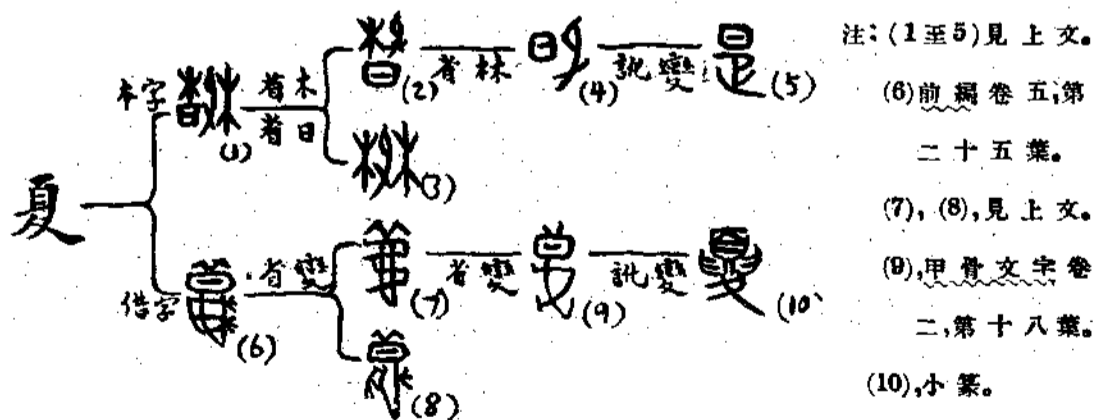 夏
本字
借字
(1)
省木
省日
(2)
省林
(4)
訛變
(5)
(3)
(6)
省變
(7)
省變
(9)
訛變
(10)
(8)
注:(1至5)見上文。
(6)前編卷五,第
二十五葉。
(7), (8),見上文。
(9),甲骨文字卷
二,第十八葉。
(10),小篆。